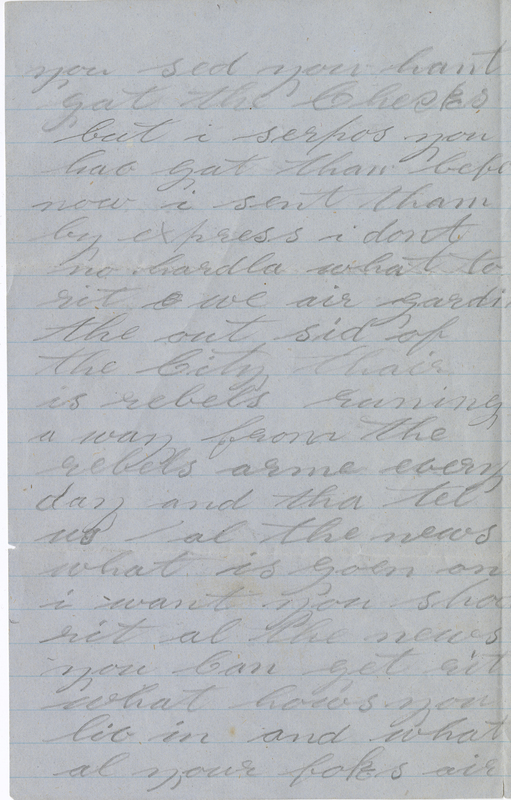 you sed you hant
gat the Checks
but i serpos you
hav gat tham befo
now i sent tham
by express i dont
no hardla what to
rit we air gardi
the out sid of
the City thair
is rebels runing
a way from the
rebels arme every
day and tha tel
us al the news
what is goen on
i want you shoo
rit al the news
you Can get rit
what hows you
liv in and what
al your foks air